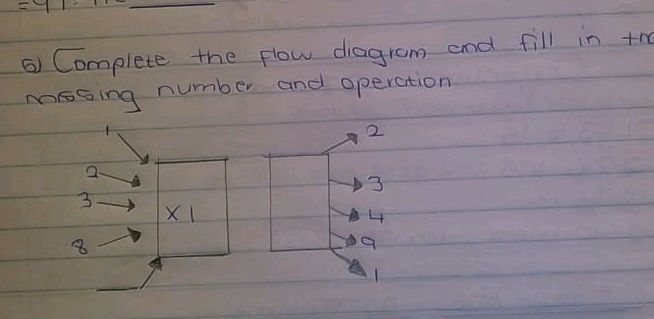 5) Complete the flow diagram and fill in
missing number and operation
1 2
2 3
3 x 1 4
8 9
1